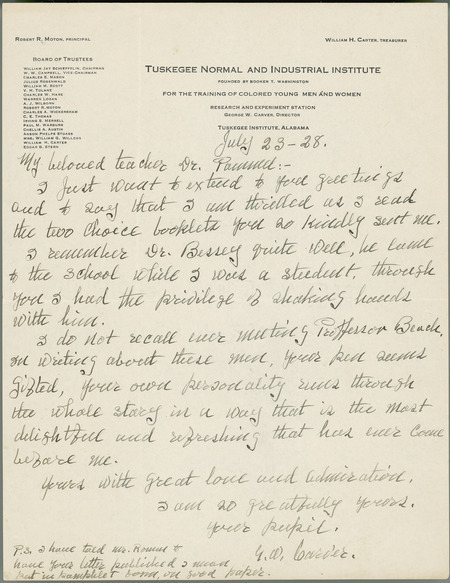 ROBERT R. MOTON, PRINCIPAL
WILLIAM H. CARTER, TREASURER
BOARD OF TRUSTEES
WILLIAM JAY SCHIEFFELIN, CHAIRMAN
W. W. CAMPBELL, VICE CHAIRMAN
CHARLES E. MASON
JULIUS ROSENWALD
WILLIAM M. SCOTT
V. H. TULANE
CHARLES W. HARE
WARREN LOGAN
A. J. WILBORN
ROBERT R. MOTON
CHARLES A. WICKERSHAM
C. E. THOMAS
PAUL M. WARBURG
CHELLIS A. AUSTIN
WILLIAM H. CARTER
EDGAR B. STERN
TUSKEGEE NORMAL AND INDUSTRIAL INSTITUTE
FOUNDED BY BOOKER T. WASHINGTON
FOR THE TRAINING OF COLORED YOUNG MEN AND WOMEN
RESEARCH AND EXPERIMENT STATION
GEORGE W. CARVER, DIRECTOR
TUSKEGEE INSTITUTE, ALABAMA
July 23-28.
My beloved teacher Dr. Pammel:-
I just want to extend to you greetings
and to say that I am thrilled as I read
the two choice booklets you so kindly sent me.
I remember Dr. Bessey quite well, he came
to the school while I was a student, through
you I had the privilege of shaking hands
with him.
I do not recall ever meeting Proffessor Beach,
in writing about these men, your pen seems
gifted, your own personality runs through
the whole story in a way that is the most
delightful and refreshing that has ever come
before me.
Yours with great love and admiration.
I am so greatfully yours.
your pupil.
G. W. Carver.
P.S. I have told Mr. to
have your letter published I mean
put in pamphlet bond, on good paper.